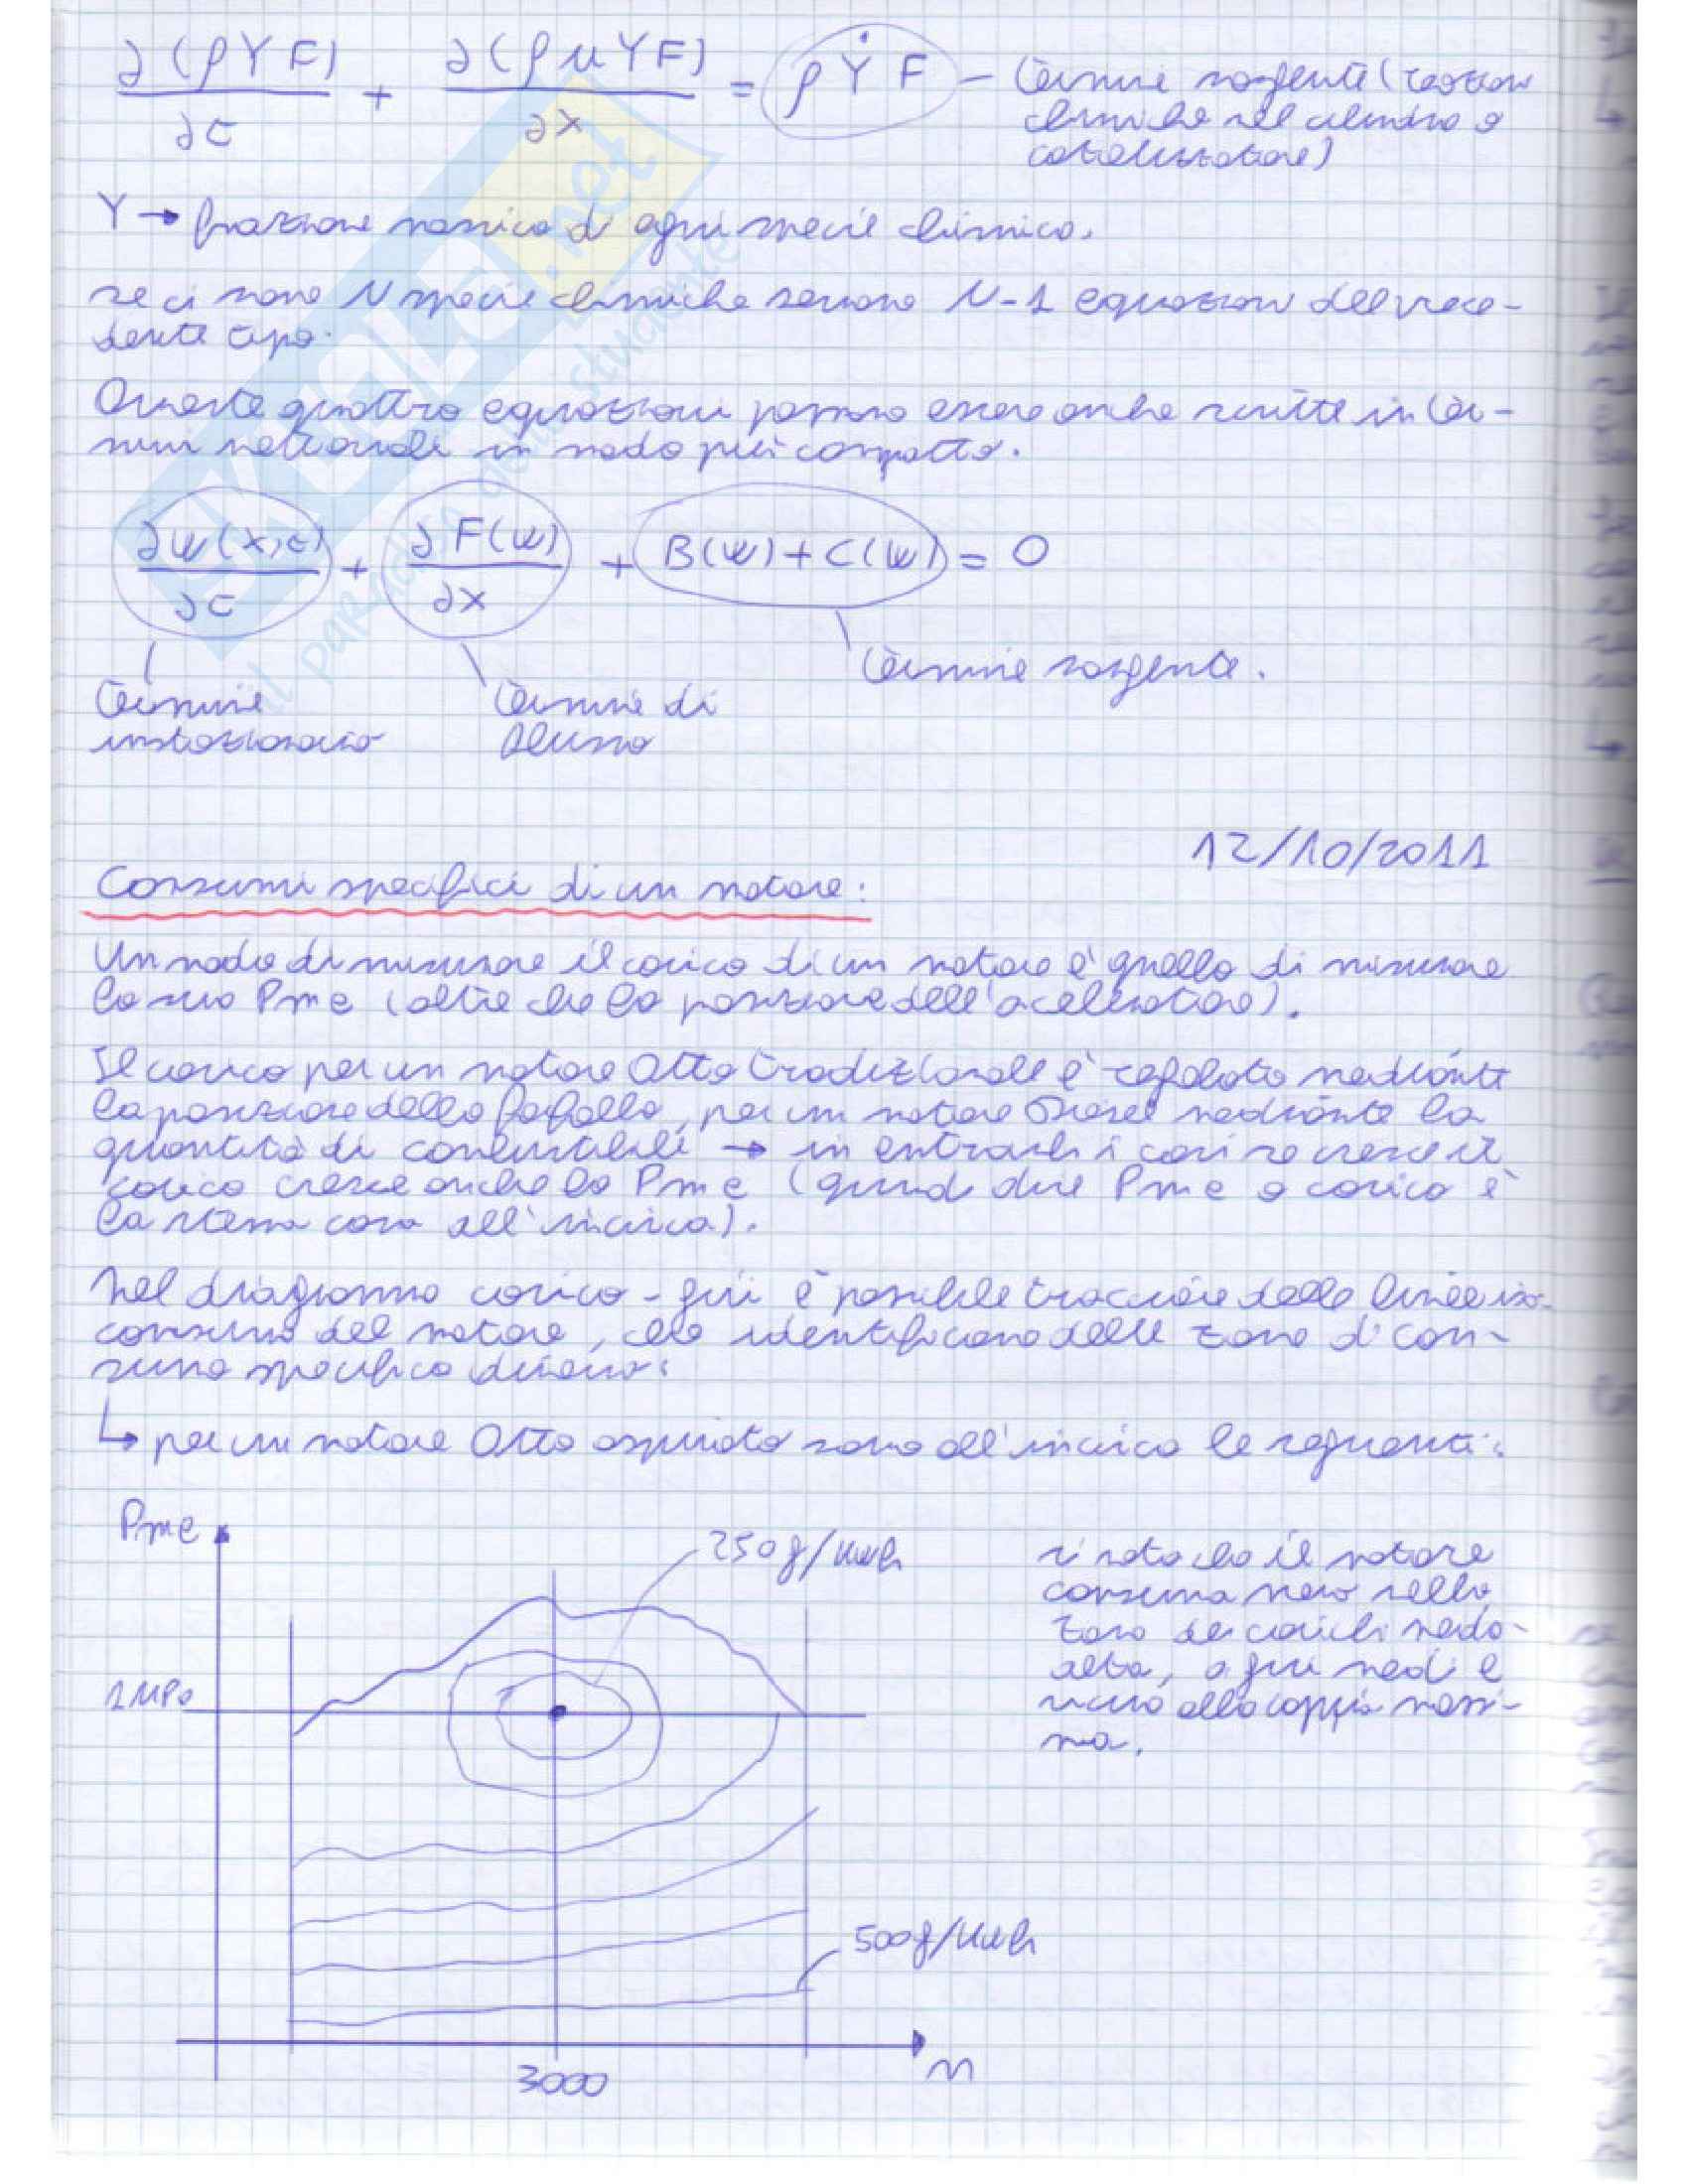 ∂(ρYF)/∂t + ∂(ρuYF)/∂x = ρẎF – termine sorgente (reazioni
chimiche nel cilindro o
catalizzatore)
Y → frazione massica di ogni specie chimica.
se ci sono N specie chimiche servono N-1 equazioni del prece-
dente tipo.
Queste quattro equazioni possono essere anche scritte in ter-
mini matriciali in modo più compatto.
∂w(x,t)/∂t + ∂F(w)/∂x + B(w)+C(w) = 0
termine sorgente.
termine
instazionario
termine di
flusso
12/10/2011
Consumi specifici di un motore:
Un modo di misurare il carico di un motore è quello di misurare
la sua Pme (oltre che la posizione dell'acelleratore).
Il carico per un motore Otto tradizionale è regolato mediante
la posizione della farfalla, per un motore Diesel mediante la
quantità di combustibile → in entrambi i casi se cresce il
carico cresce anche la Pme (quindi dire Pme o carico è
la stessa cosa all'incirca).
Nel diagramma carico-giri è possibile tracciare delle linee iso-
consumo del motore, che identificano delle zone di con-
sumo specifico diverso:
↳ per un motore Otto aspirato sono all'incirca le seguenti:
Pme
250 g/kWh
1 MPa
500 g/kWh
3000
n
si nota che il motore
consuma meno nella
zona dei carichi medio-
alta, a giri medi e
vicino alla coppia massi-
ma.
SKUOLA.net
il paradiso dello studente